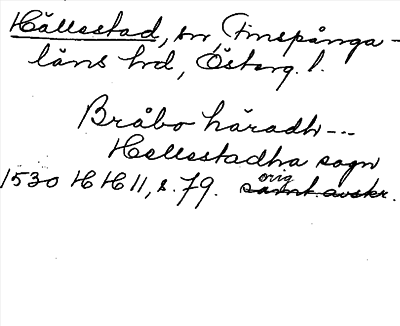 Hällestad, sn, Finspånga-
läns hd, Österg. l.
Bråbo häradh---
Hellestadha sogn
orig
1530 HH 11, s. 79. samt. avskr.